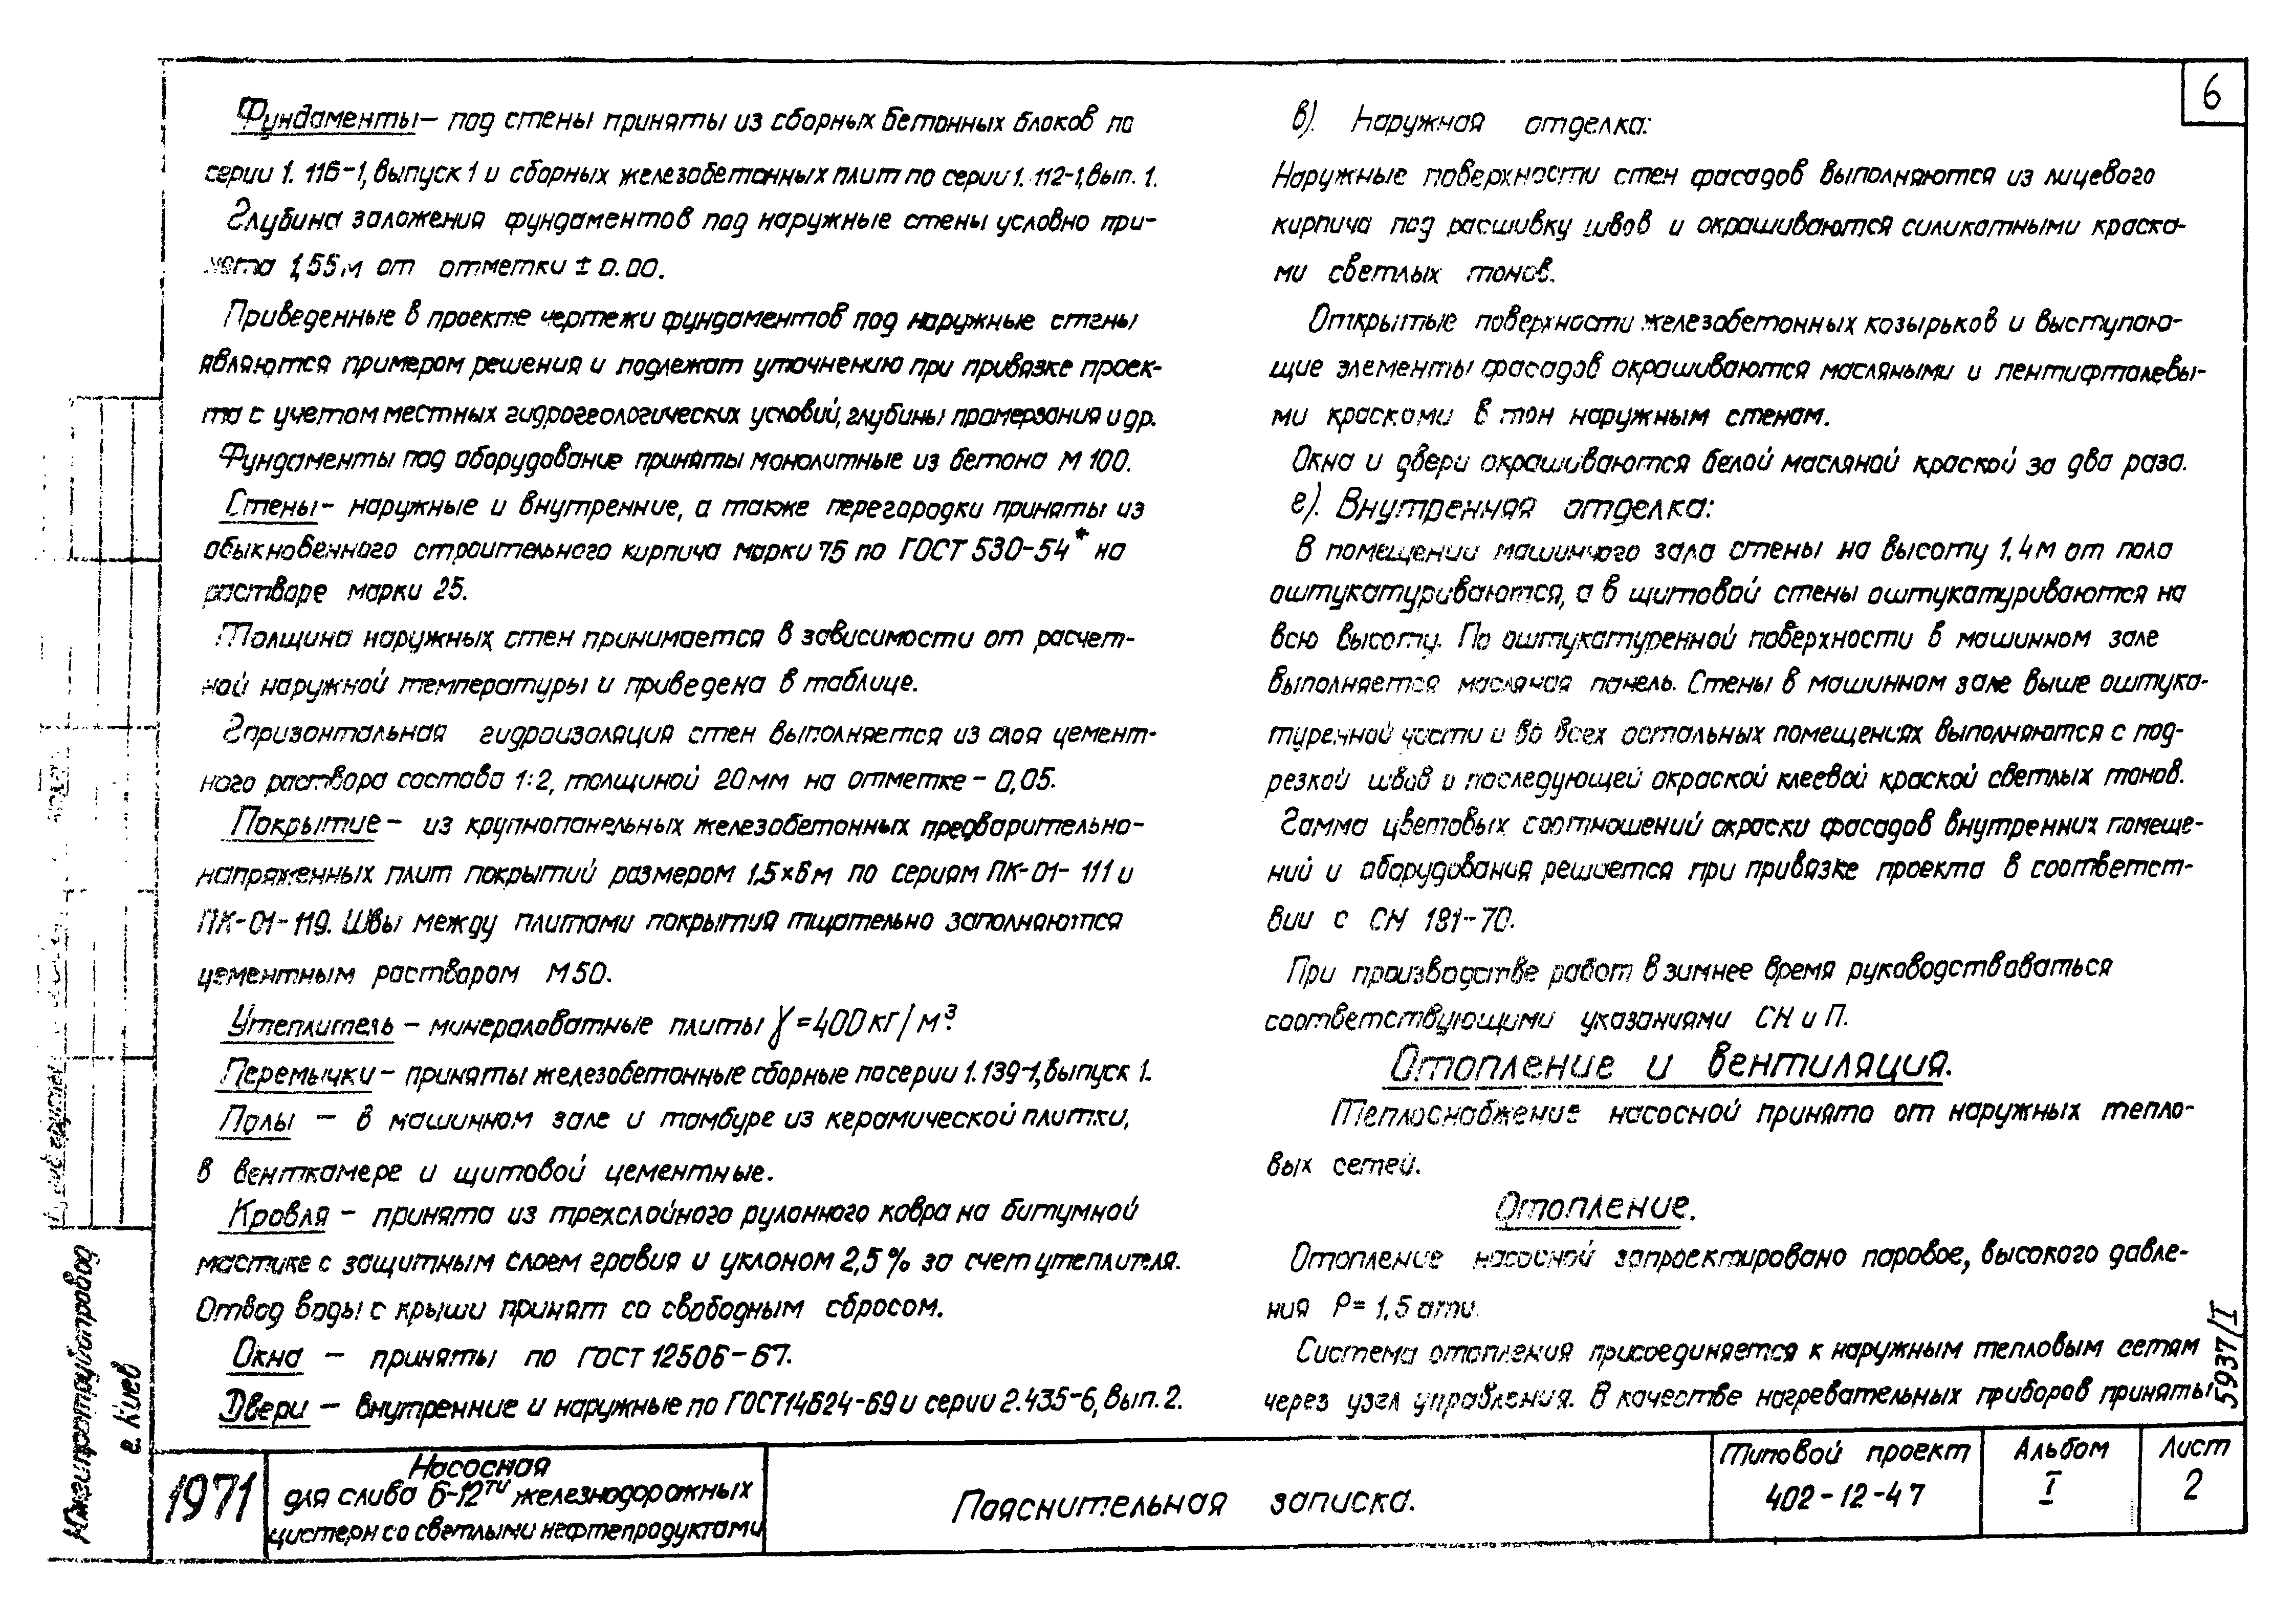 6
Фундаменты – под стены приняты из сборных бетонных блоков по
серии 1.116-1, выпуск 1 и сборных железобетонных плит по серии 1.112-1, вып. 1.
Глубина заложения фундаментов под наружные стены условно при-
нята 1,55м от отметки ± 0.00.
Приведенные в проекте чертежи фундаментов под наружные стены
являются примером решения и подлежат уточнению при привязке проек-
та с учетом местных гидрогеологических условий, глубины промерзания и др.
Фундаменты под оборудование приняты монолитные из бетона М 100.
Стены – наружные и внутренние, а также перегородки приняты из
обыкновенного строительного кирпича марки 75 по ГОСТ 530-54* на
растворе марки 25.
Толщина наружных стен принимается в зависимости от расчет-
ной наружной температуры и приведена в таблице.
Горизонтальная гидроизоляция стен выполняется из слоя цемент-
ного раствора состава 1:2, толщиной 20мм на отметке – 0,05.
Покрытие – из крупнопанельных железобетонных предварительно-
напряженных плит покрытий размером 1,5×6м по сериям ПК-01-111 и
ПК-01-119. Швы между плитами покрытия тщательно заполняются
цементным раствором М50.
Утеплитель – минераловатные плиты γ=400кг/м³.
Перемычки – приняты железобетонные сборные по серии 1.139-1, выпуск 1.
Полы – в машинном зале и тамбуре из керамической плитки,
в венткамере и щитовой цементные.
Кровля – принята из трехслойного рулонного ковра на битумной
мастике с защитным слоем гравия и уклоном 2,5% за счет утеплителя.
Отвод воды с крыши принят со свободным сбросом.
Окна – приняты по ГОСТ 12506-67.
Двери – внутренние и наружные по ГОСТ 14624-69 и серии 2.435-6, вып. 2.
в). Наружная отделка:
Наружные поверхности стен фасадов выполняются из лицевого
кирпича под расшивку швов и окрашиваются силикатными краска-
ми светлых тонов.
Открытые поверхности железобетонных козырьков и выступаю-
щие элементы фасадов окрашиваются масляными и пентифталевы-
ми красками в тон наружным стенам.
Окна и двери окрашиваются белой масляной краской за два раза.
г). Внутренняя отделка:
В помещении машинного зала стены на высоту 1,4м от пола
оштукатуриваются, а в щитовой стены оштукатуриваются на
всю высоту. По оштукатуренной поверхности в машинном зале
выполняется масляная панель. Стены в машинном зале выше оштука-
туренной части и во всех остальных помещениях выполняются с под-
резкой швов и последующей окраской клеевой краской светлых тонов.
Гамма цветовых соотношений окраски фасадов внутренних помеще-
ний и оборудования решается при привязке проекта в соответст-
вии с СН 181-70.
При производстве работ в зимнее время руководствоваться
соответствующими указаниями СН и П.
Отопление и вентиляция.
Теплоснабжение насосной принято от наружных тепло-
вых сетей.
Отопление.
Отопление насосной запроектировано паровое, высокого давле-
ния Р= 1,5 ати.
Система отопления присоединяется к наружным тепловым сетям
через узел управления. В качестве нагревательных приборов приняты
5937/I
Южгипронефтепровод
г. Киев
1971
Насосная
для слива 6-12ти железнодорожных
цистерн со светлыми нефтепродуктами
Пояснительная записка.
Типовой проект
402-12-47
Альбом
I
Лист
2